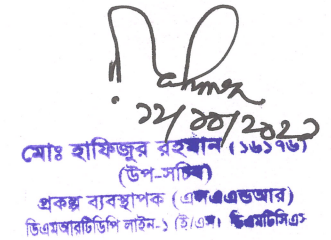 Rahman
১২/১০/২০২১
মোঃ হাফিজুর রহমান (১৬১৭৬)
(উপ-সচিব)
প্রকল্প ব্যবস্থাপক (এলএএন্ডআর)
ডিএমআরটিডিপি লাইন-১ (ই/এস) ডিএমটিসিএল